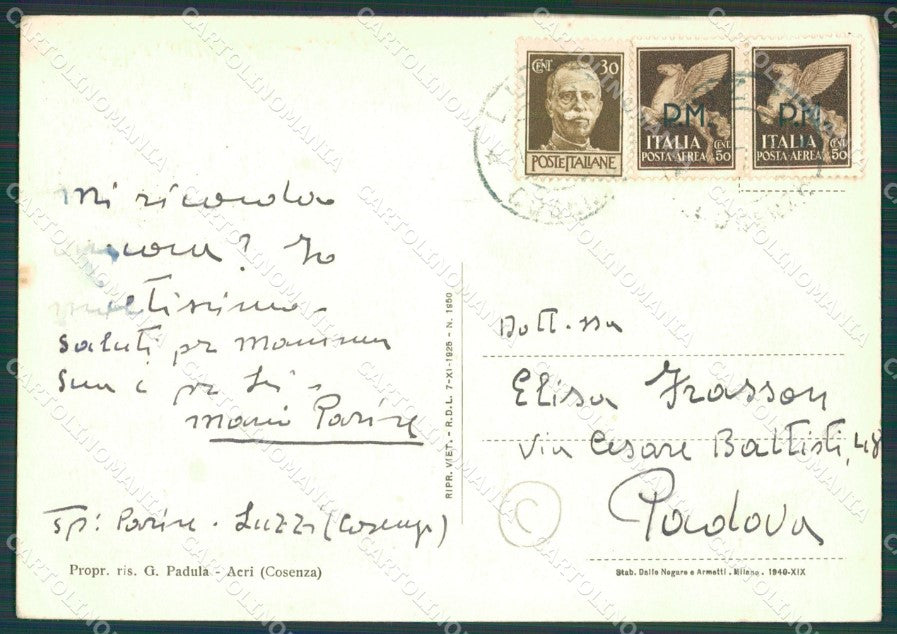 Mi ricorda
ancora? Io
moltissimo.
Saluti per mamma
Sua e per Lei.
Sp: Parise - Luzzi (Cosenza)
Propr. ris. G. Padula - Acri (Cosenza)
RIPR. VIET. - R.D.L. 7-XI-1925 - N. 1950
CENT. 30
POSTE ITALIANE
P.M.
ITALIA
POSTA-AEREA CENT. 50
P.M.
ITALIA
POSTA-AEREA CENT. 50
Dott.ssa
Elisa Frasson
Via Cesare Battisti, 48
Padova
C
Stab. Dalle Nogare e Armetti - Milano - 1940-XIX
CARTOLINOMANIA